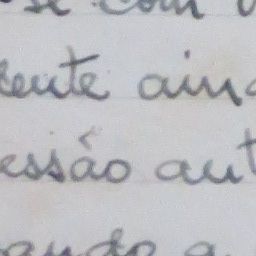 se com
ente ain
essão aut
ando a